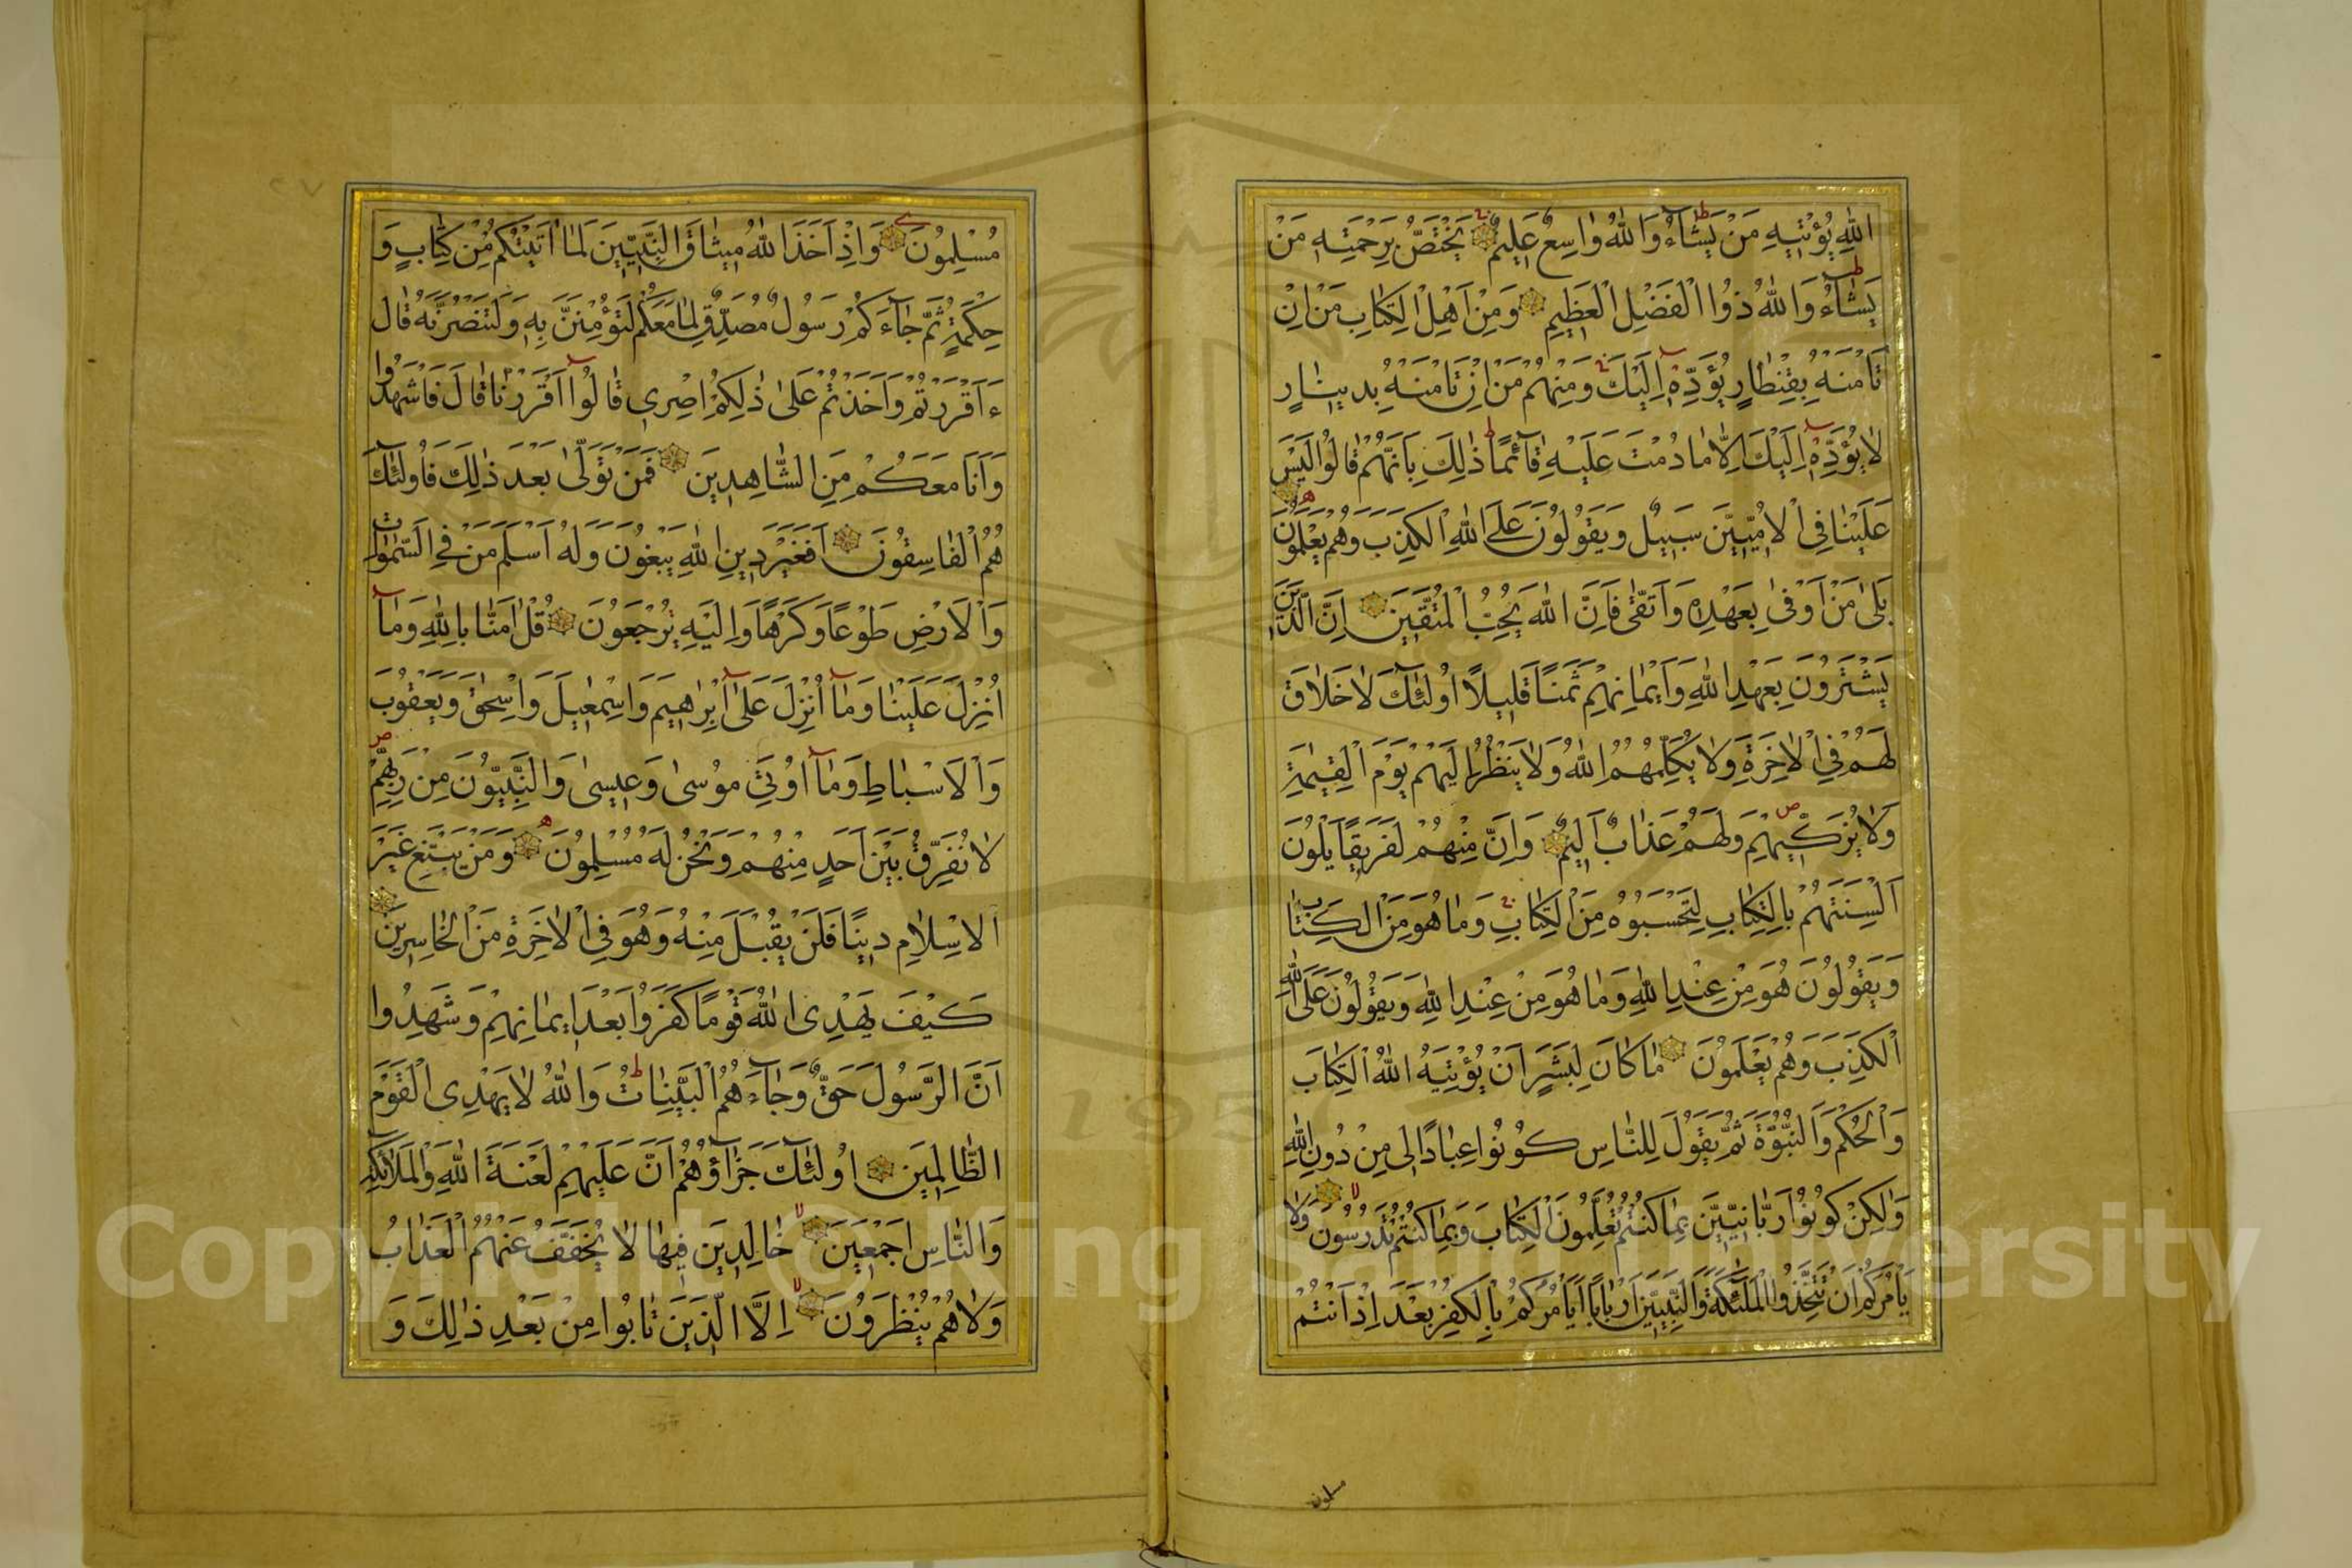 اللهِ يُؤْتِيهِ مَنْ يَشَاءُ وَاللهُ وَاسِعٌ عَلِيمٌ يَخْتَصُّ بِرَحْمَتِهِ مَنْ
يَشَاءُ وَاللهُ ذُوا الْفَضْلِ الْعَظِيمِ وَمِنْ اَهْلِ الْكِتَابِ مَنْ اِنْ
تَأْمَنْهُ بِقِنْطَارٍ يُؤَدِّهِ اِلَيْكَ وَمِنْهُمْ مَنْ اِنْ تَأْمَنْهُ بِدِينَارٍ
لَا يُؤَدِّهِ اِلَيْكَ اِلَّا مَا دُمْتَ عَلَيْهِ قَآئِمًا ذٰلِكَ بِاَنَّهُمْ قَالُوا لَيْسَ
عَلَيْنَا فِي الْاُمِّيِّينَ سَبِيلٌ وَيَقُولُونَ عَلَى اللهِ الْكَذِبَ وَهُمْ يَعْلَمُونَ
بَلٰى مَنْ اَوْفٰى بِعَهْدِهِ وَاتَّقٰى فَاِنَّ اللهَ يُحِبُّ الْمُتَّقِينَ اِنَّ الَّذِينَ
يَشْتَرُونَ بِعَهْدِ اللهِ وَاَيْمَانِهِمْ ثَمَنًا قَلِيلًا اُولٰئِكَ لَا خَلَاقَ
لَهُمْ فِي الْاٰخِرَةِ وَلَا يُكَلِّمُهُمُ اللهُ وَلَا يَنْظُرُ اِلَيْهِمْ يَوْمَ الْقِيٰمَةِ
وَلَا يُزَكِّيهِمْ وَلَهُمْ عَذَابٌ اَلِيمٌ وَاِنَّ مِنْهُمْ لَفَرِيقًا يَلْوُنَ
اَلْسِنَتَهُمْ بِالْكِتَابِ لِتَحْسَبُوهُ مِنَ الْكِتَابِ وَمَا هُوَ مِنَ الْكِتَابِ
وَيَقُولُونَ هُوَ مِنْ عِنْدِ اللهِ وَمَا هُوَ مِنْ عِنْدِ اللهِ وَيَقُولُونَ عَلَى اللهِ
الْكَذِبَ وَهُمْ يَعْلَمُونَ مَا كَانَ لِبَشَرٍ اَنْ يُؤْتِيَهُ اللهُ الْكِتَابَ
وَالْحُكْمَ وَالنُّبُوَّةَ ثُمَّ يَقُولَ لِلنَّاسِ كُونُوا عِبَادًا لِى مِنْ دُونِ اللهِ
وَلٰكِنْ كُونُوا رَبَّانِيِّينَ بِمَا كُنْتُمْ تُعَلِّمُونَ الْكِتَابَ وَبِمَا كُنْتُمْ تَدْرُسُونَ وَلَا
يَأْمُرَكُمْ اَنْ تَتَّخِذُوا الْمَلٰئِكَةَ وَالنَّبِيِّينَ اَرْبَابًا اَيَأْمُرُكُمْ بِالْكُفْرِ بَعْدَ اِذْ اَنْتُمْ
مسلمون
مُسْلِمُونَ وَاِذْ اَخَذَ اللهُ مِيثَاقَ النَّبِيِّينَ لَمَا اٰتَيْتُكُمْ مِنْ كِتَابٍ وَ
حِكْمَةٍ ثُمَّ جَآءَكُمْ رَسُولٌ مُصَدِّقٌ لِمَا مَعَكُمْ لَتُؤْمِنُنَّ بِهِ وَلَتَنْصُرُنَّهُ قَالَ
ءَاَقْرَرْتُمْ وَاَخَذْتُمْ عَلٰى ذٰلِكُمْ اِصْرِى قَالُوا اَقْرَرْنَا قَالَ فَاشْهَدُوا
وَاَنَا مَعَكُمْ مِنَ الشَّاهِدِينَ فَمَنْ تَوَلّٰى بَعْدَ ذٰلِكَ فَاُولٰئِكَ
هُمُ الْفَاسِقُونَ اَفَغَيْرَ دِينِ اللهِ يَبْغُونَ وَلَهُ اَسْلَمَ مَنْ فِي السَّمٰوَاتِ
وَالْاَرْضِ طَوْعًا وَكَرْهًا وَاِلَيْهِ يُرْجَعُونَ قُلْ اٰمَنَّا بِاللهِ وَمَآ
اُنْزِلَ عَلَيْنَا وَمَآ اُنْزِلَ عَلٰى اِبْرٰهِيمَ وَاِسْمٰعِيلَ وَاِسْحٰقَ وَيَعْقُوبَ
وَالْاَسْبَاطِ وَمَآ اُوتِيَ مُوسٰى وَعِيسٰى وَالنَّبِيُّونَ مِنْ رَبِّهِمْ
لَا نُفَرِّقُ بَيْنَ اَحَدٍ مِنْهُمْ وَنَحْنُ لَهُ مُسْلِمُونَ وَمَنْ يَبْتَغِ غَيْرَ
الْاِسْلَامِ دِينًا فَلَنْ يُقْبَلَ مِنْهُ وَهُوَ فِي الْاٰخِرَةِ مِنَ الْخَاسِرِينَ
كَيْفَ يَهْدِى اللهُ قَوْمًا كَفَرُوا بَعْدَ اِيمَانِهِمْ وَشَهِدُوا
اَنَّ الرَّسُولَ حَقٌّ وَجَآءَهُمُ الْبَيِّنَاتُ وَاللهُ لَا يَهْدِى الْقَوْمَ
الظَّالِمِينَ اُولٰئِكَ جَزَآؤُهُمْ اَنَّ عَلَيْهِمْ لَعْنَةَ اللهِ وَالْمَلٰئِكَةِ
وَالنَّاسِ اَجْمَعِينَ خَالِدِينَ فِيهَا لَا يُخَفَّفُ عَنْهُمُ الْعَذَابُ
وَلَا هُمْ يُنْظَرُونَ اِلَّا الَّذِينَ تَابُوا مِنْ بَعْدِ ذٰلِكَ وَ
٢٧
1957
Copyright © King Saud University